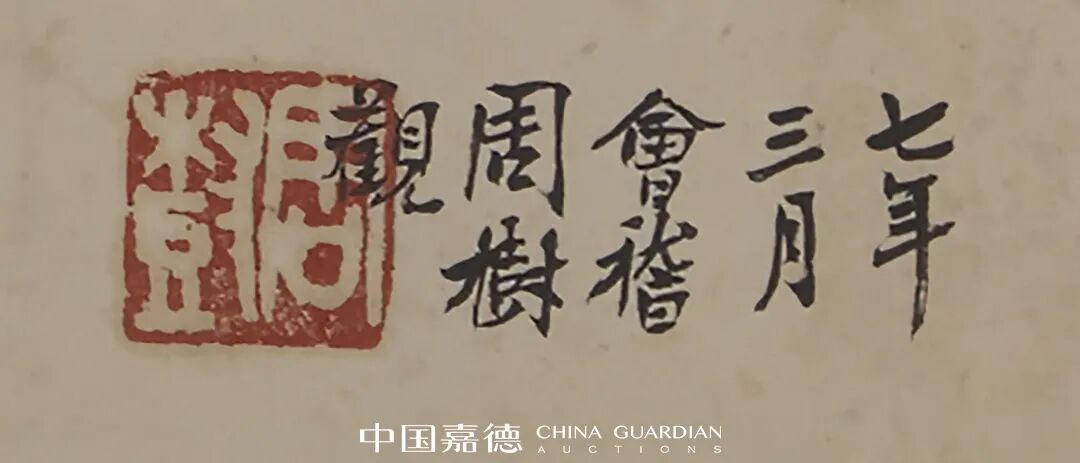 七年
三月
會稽
周樹
觀
周樹
中国嘉德 CHINA GUARDIAN
AUCTIONS